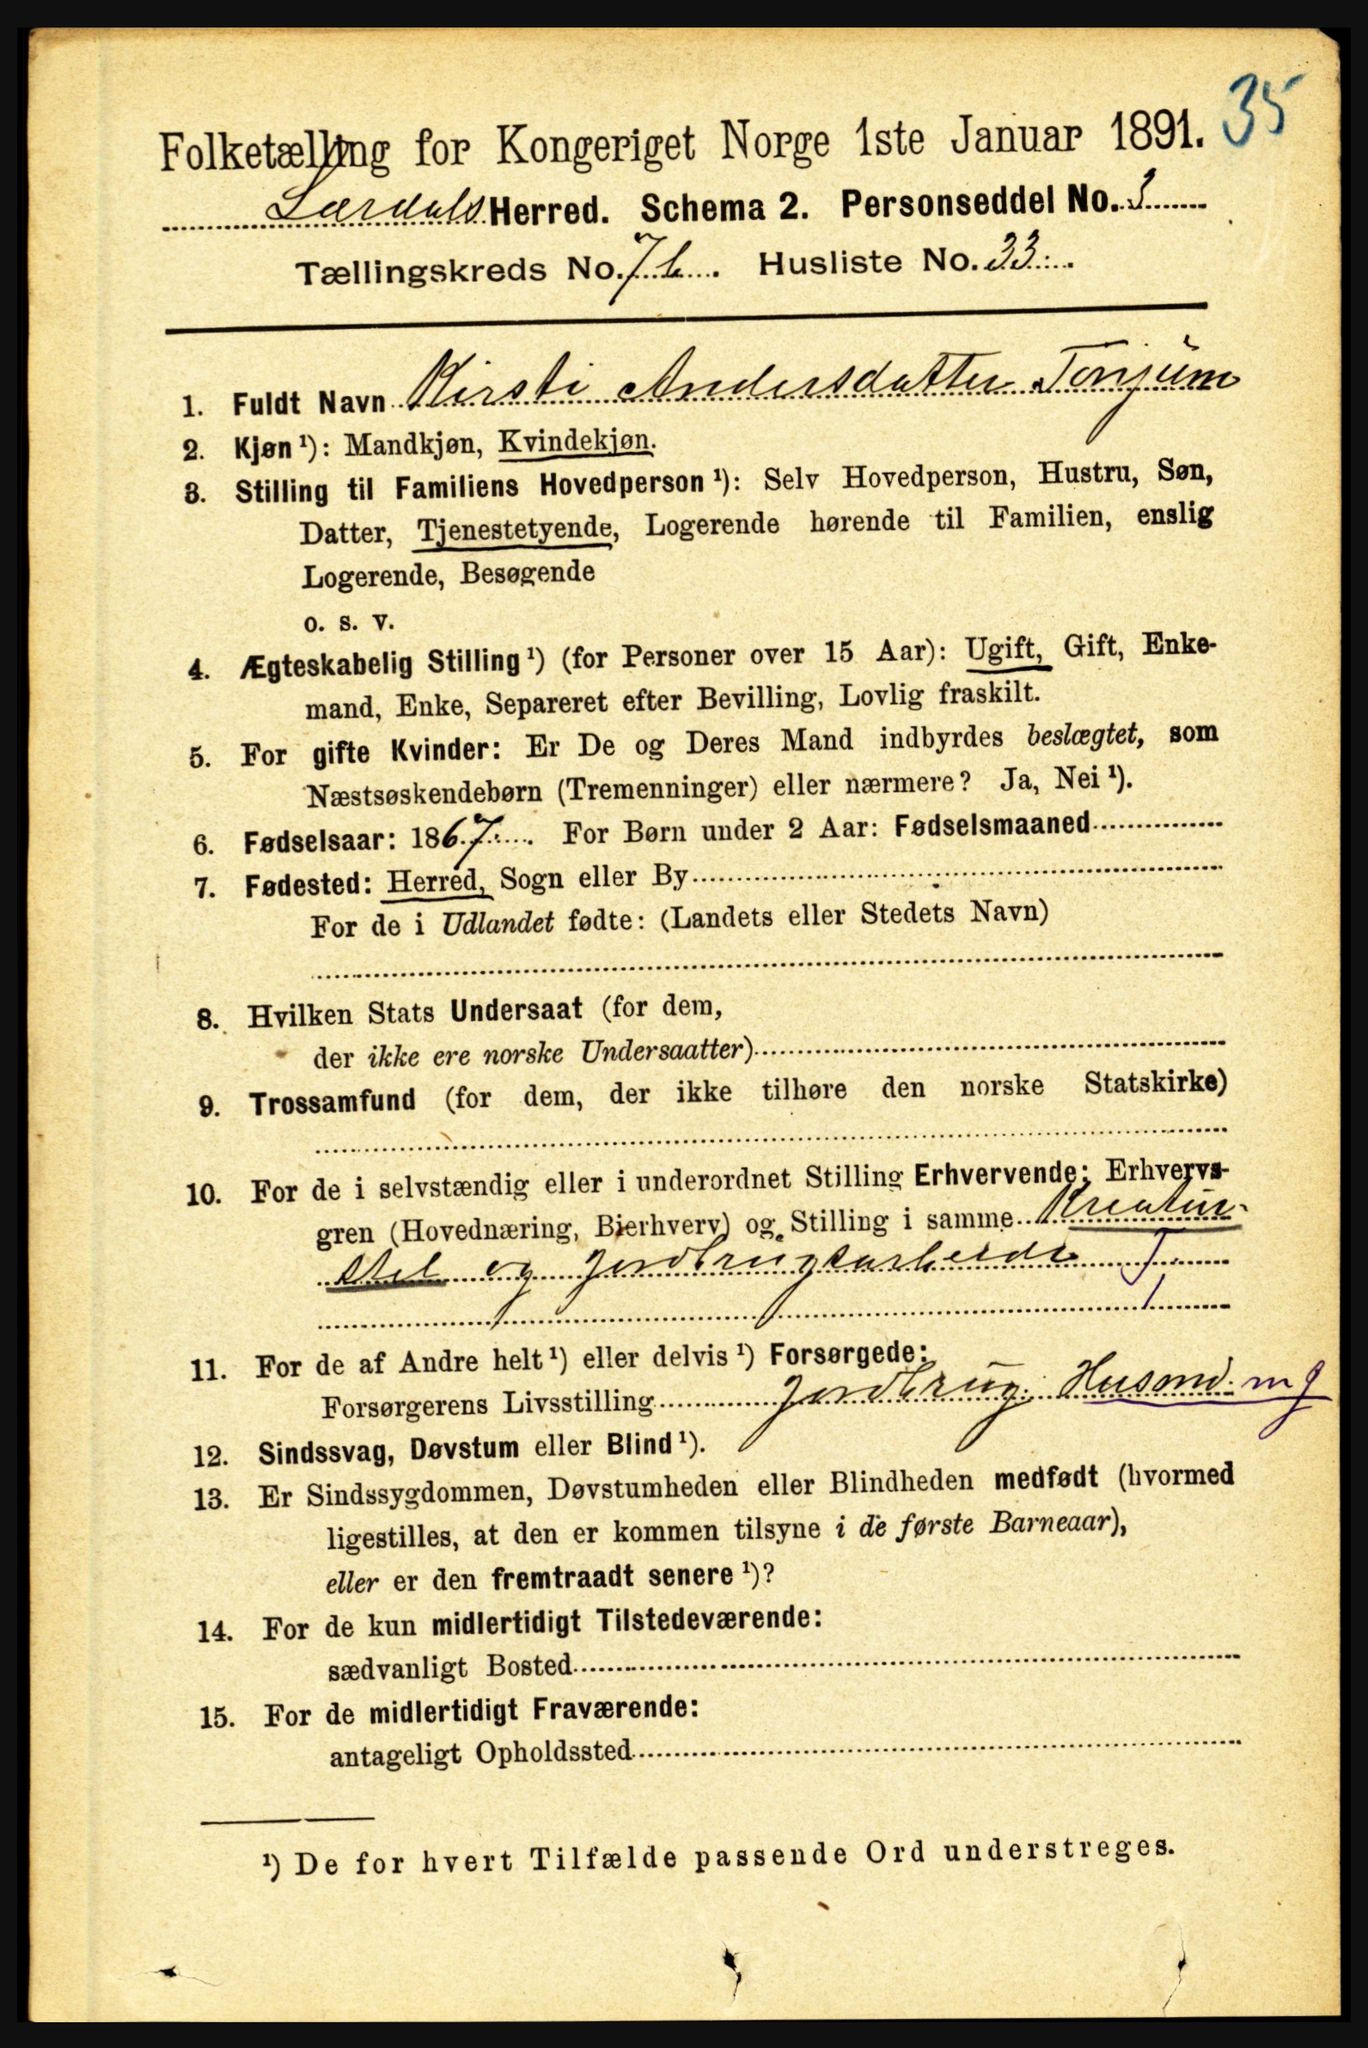 35
Folketælling for Kongeriget Norge 1ste Januar 1891.
Lærdals Herred. Schema 2. Personseddel No. 3
Tællingskreds No. 7b. Husliste No. 33.
1. Fuldt Navn Kirsti Andersdatter Tonjum
2. Kjøn ¹): Mandkjøn, Kvindekjøn.
3. Stilling til Familiens Hovedperson ¹): Selv Hovedperson, Hustru, Søn,
Datter, Tjenestetyende, Logerende hørende til Familien, enslig
Logerende, Besøgende
o. s. v.
4. Ægteskabelig Stilling ¹) (for Personer over 15 Aar): Ugift, Gift, Enke-
mand, Enke, Separeret efter Bevilling, Lovlig fraskilt.
5. For gifte Kvinder: Er De og Deres Mand indbyrdes beslægtet, som
Næstsøskendebørn (Tremenninger) eller nærmere? Ja, Nei ¹).
6. Fødselsaar: 1867. For Børn under 2 Aar: Fødselsmaaned
7. Fødested: Herred, Sogn eller By
For de i Udlandet fødte: (Landets eller Stedets Navn)
8. Hvilken Stats Undersaat (for dem,
der ikke ere norske Undersaatter)
9. Trossamfund (for dem, der ikke tilhøre den norske Statskirke)
10. For de i selvstændig eller i underordnet Stilling Erhvervende: Erhvervs-
gren (Hovednæring, Bierhverv) og Stilling i samme Kreatur-
stel og jordbrugsarbeide T.
11. For de af Andre helt ¹) eller delvis ¹) Forsørgede:
Forsørgerens Livsstilling jordbrug. Husmd. m g
12. Sindssvag, Døvstum eller Blind ¹).
13. Er Sindssygdommen, Døvstumheden eller Blindheden medfødt (hvormed
ligestilles, at den er kommen tilsyne i de første Barneaar),
eller er den fremtraadt senere ¹)?
14. For de kun midlertidigt Tilstedeværende:
sædvanligt Bosted
15. For de midlertidigt Fraværende:
antageligt Opholdssted
¹) De for hvert Tilfælde passende Ord understreges.